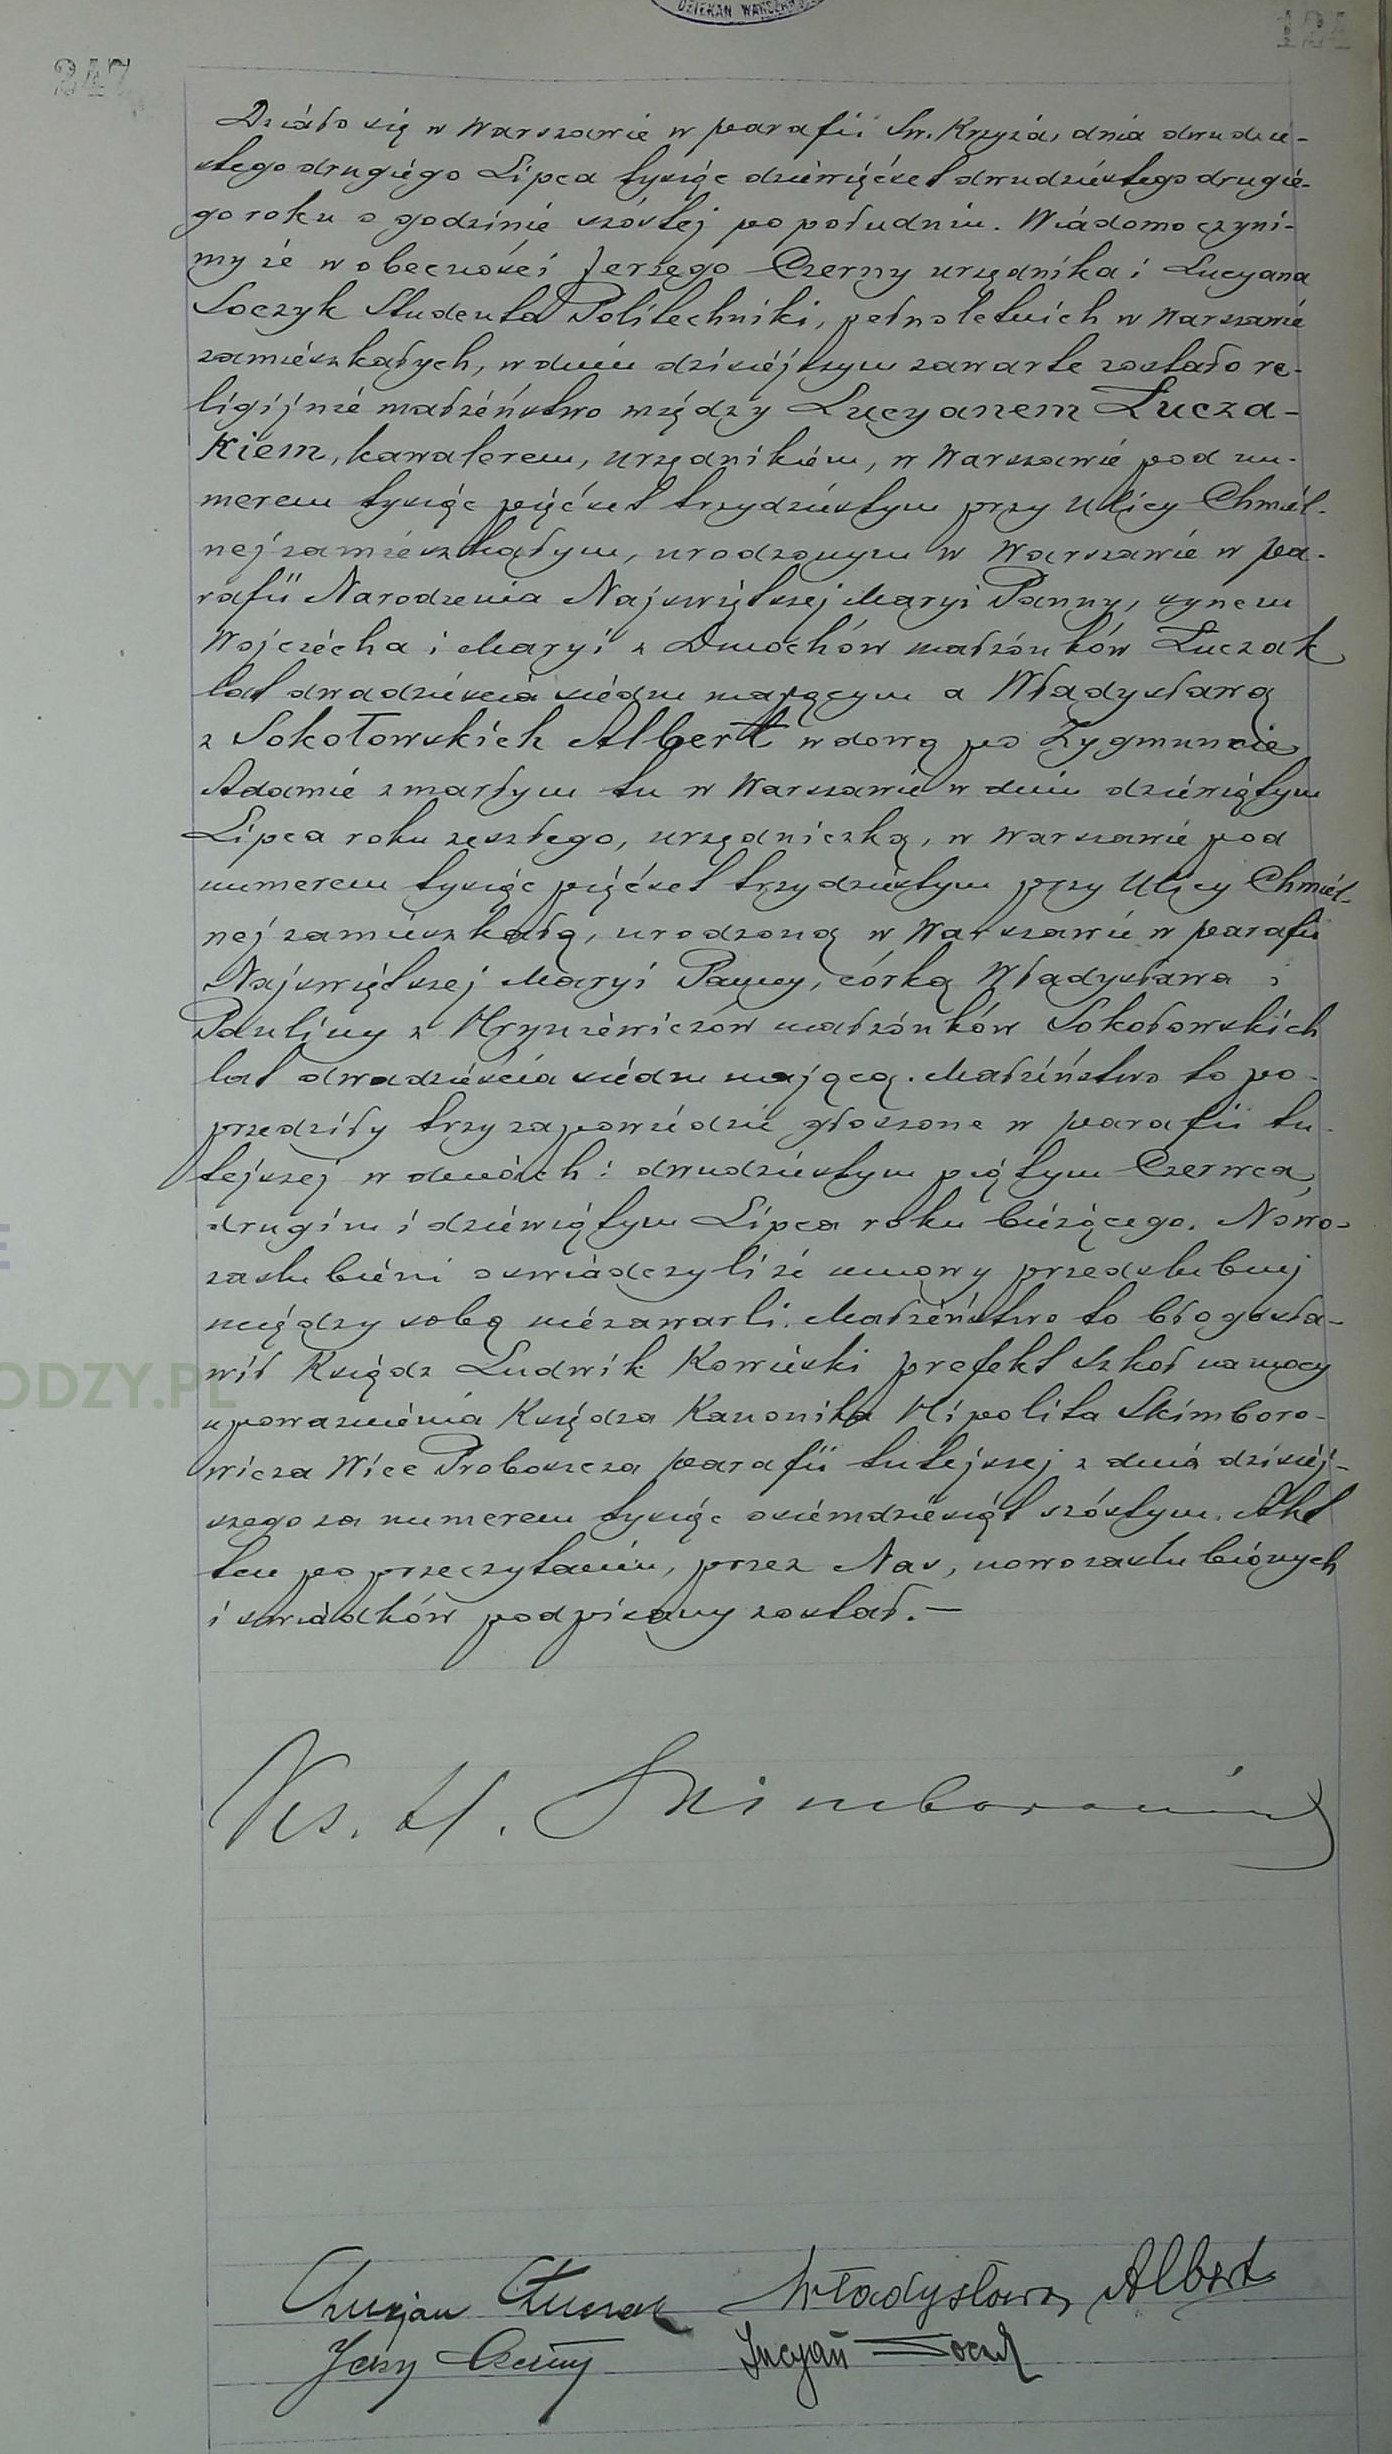 DZIEKAN WARSZAWSKI
124
247
Działo się w Warszawie w parafii Św. Krzyża, dnia dwudzie-
stego drugiego Lipca tysiąc dziewięćset dwudziestego drugie-
go roku o godzinie szóstej po południu. Wiadomo czyni-
my że w obecności Jerzego Czerny urzędnika i Lucyana
Soczyk Studenta Politechniki, pełnoletnich w Warszawie
zamieszkałych, w dniu dzisiejszym zawarte zostało re-
ligijnie małżeństwo między Lucyanem Łucza-
kiem, kawalerem, urzędnikiem, w Warszawie pod nu-
merem tysiąc pięćset trzydziestym przy Ulicy Chmiel-
nej zamieszkałym, urodzonym w Warszawie w pa-
rafii Narodzenia Najświętszej Maryi Panny, synem
Wojciecha i Maryi z Dmochów małżonków Łuczak
lat dwadzieścia siedm mającym a Władysławą
z Sokołowskich Albert wdową po Zygmuncie
Adamie zmarłym tu w Warszawie w dniu dziewiątym
Lipca roku zeszłego, urzędniczką, w Warszawie pod
numerem tysiąc pięćset trzydziestym przy Ulicy Chmiel-
nej zamieszkałą, urodzoną w Warszawie w parafii
Najświętszej Maryi Panny, córką Władysława i
Pauliny z Hryniewiczów małżonków Sokołowskich
lat dwadzieścia siedm mającą. Małżeństwo to po-
przedziły trzy zapowiedzie głoszone w parafii tu-
tejszej w dniach: dwudziestym piątym Czerwca,
drugim i dziewiątym Lipca roku bieżącego. Nowo-
zaślubieni oświadczyli że umowy przedślubnej
między sobą niezawarli. Małżeństwo to błogosła-
wił Ksiądz Ludwik Kowieski prefekt szkół na mocy
upoważnienia Księdza Kanonika Hipolita Skimboro-
wicza Wice Proboszcza parafii tutejszej z dnia dzisiej-
szego za numerem tysiąc osiemdziesiąt szóstym. Akt
ten po przeczytaniu, przez Nas, nowozaślubionych
i świadków podpisany został. —
Ks. H. Skimborowicz
Lucjan Łuczak Władysława Albert
Jerzy Czerny Lucyan Soczyk
ODZY.PL